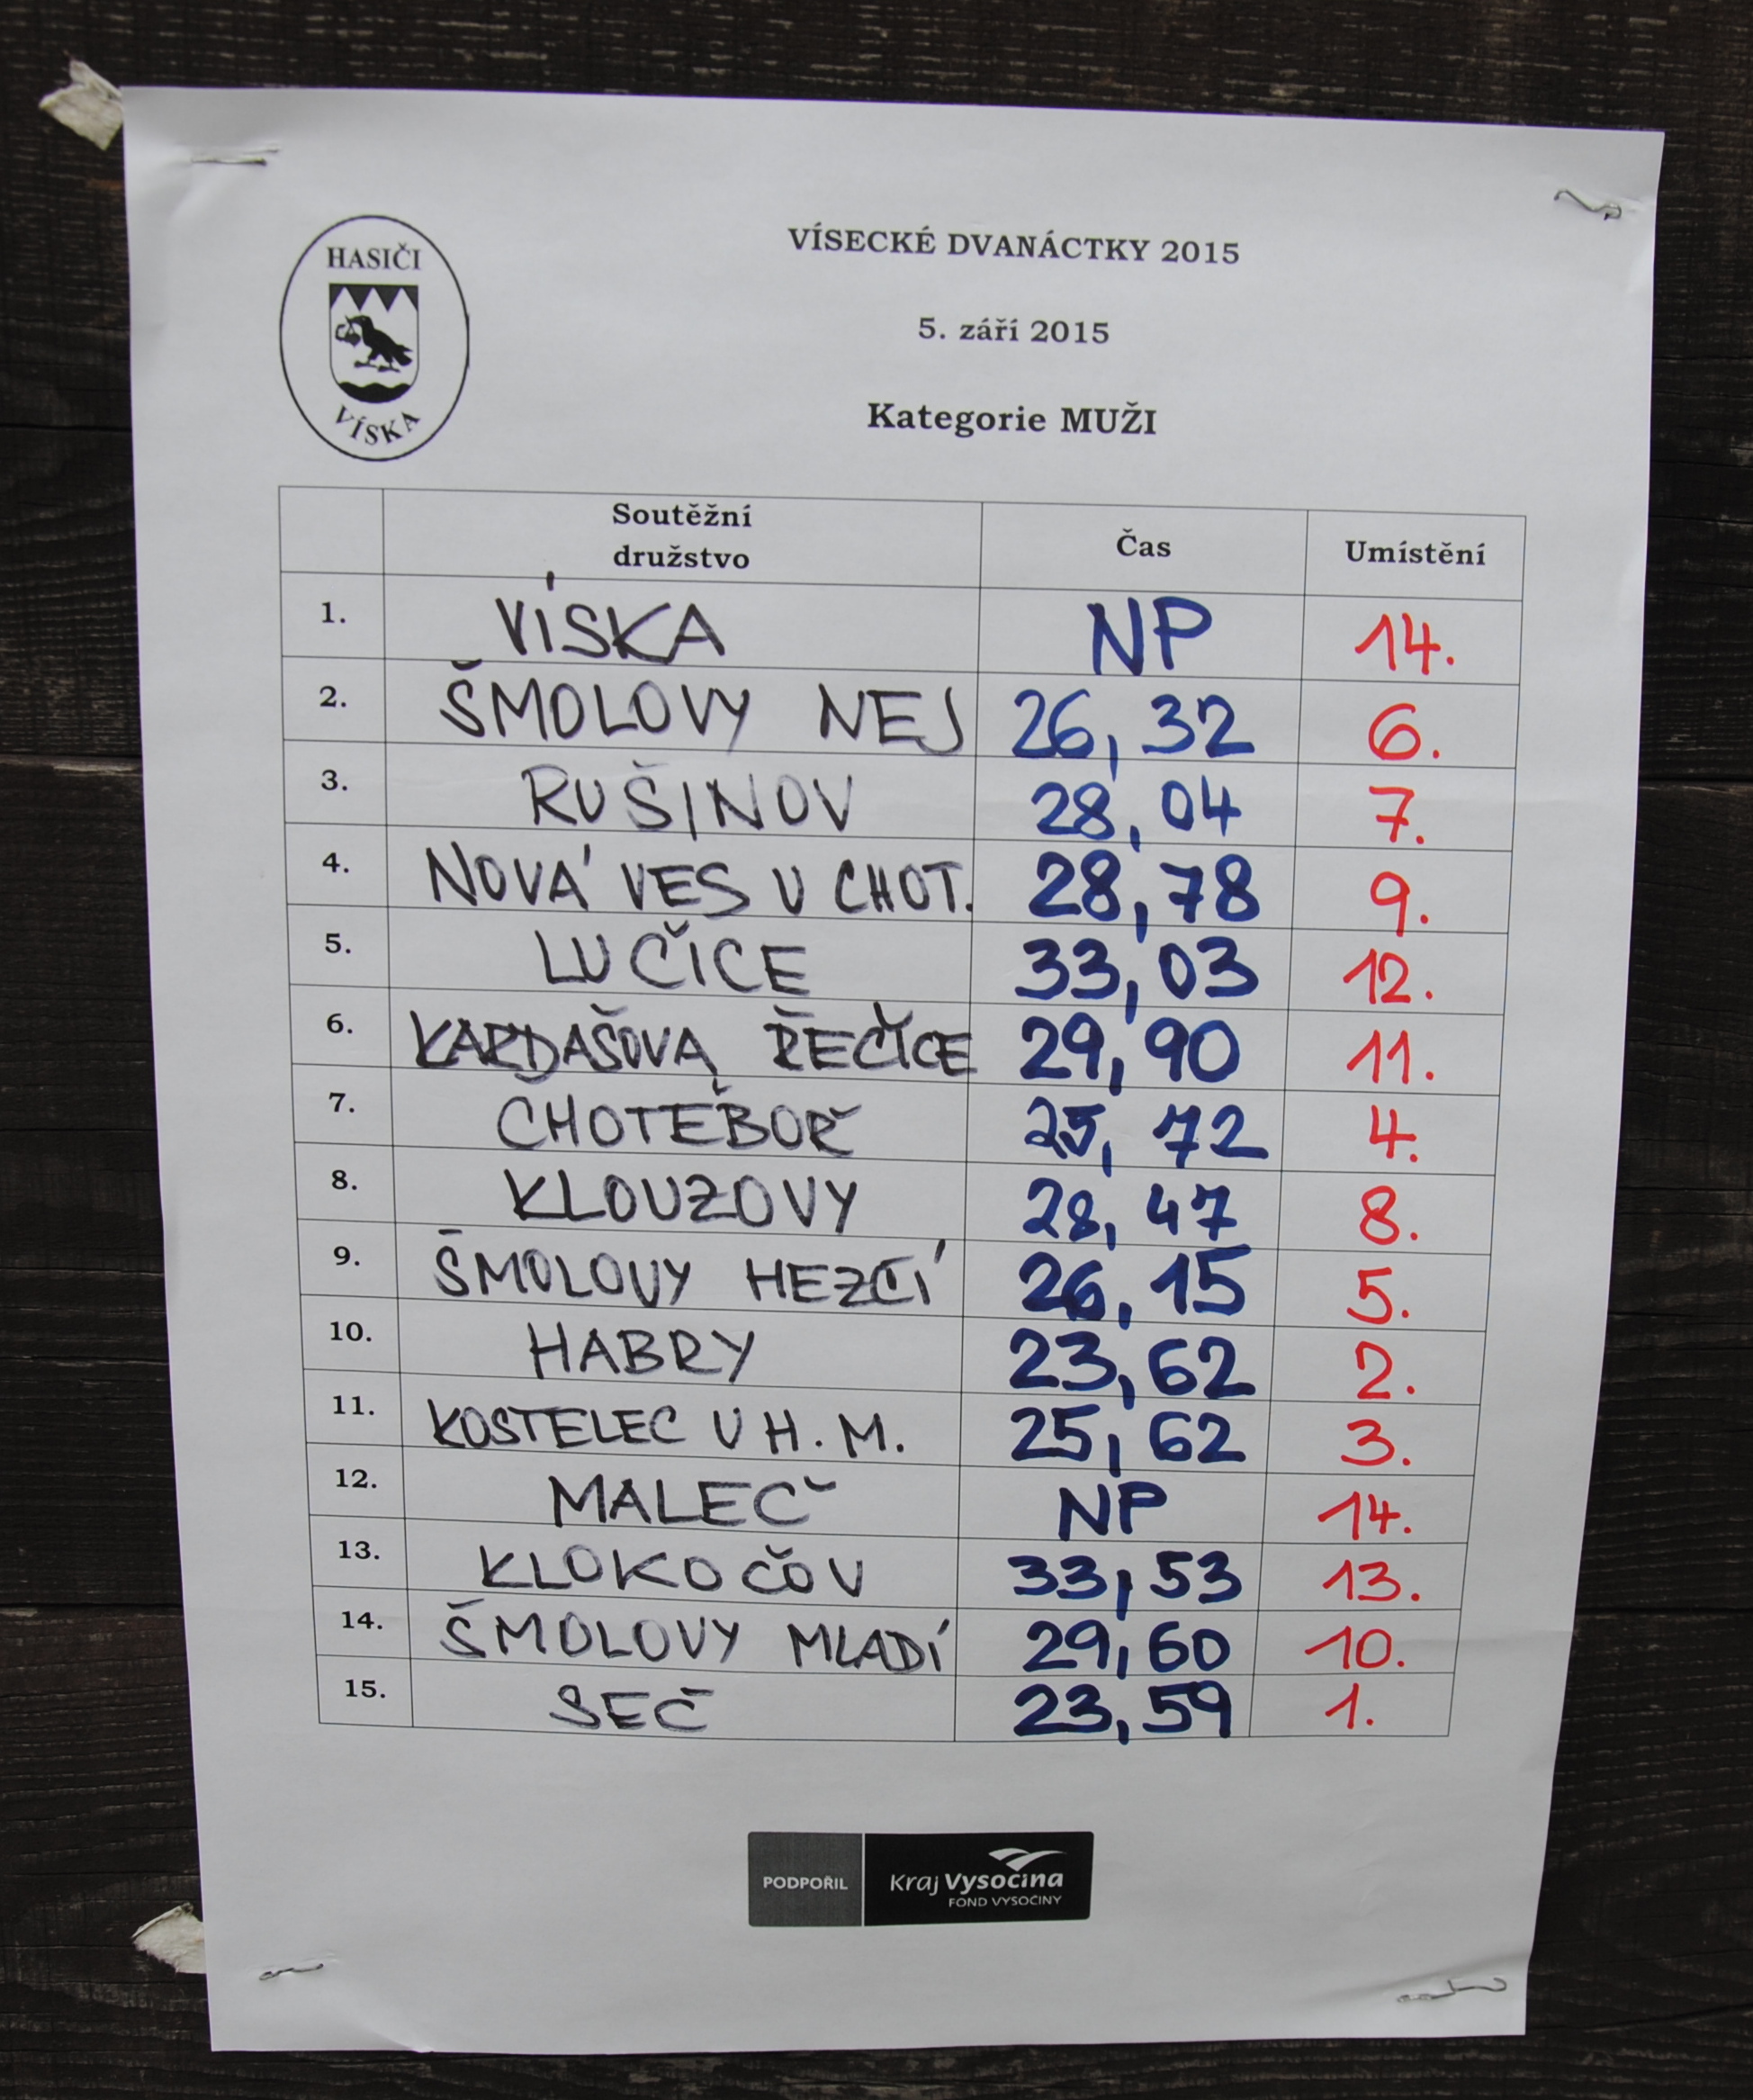 HASIČI
VÍSKA
VÍSECKÉ DVANÁCTKY 2015
5. září 2015
Kategorie MUŽI
Soutěžní družstvo Čas Umístění
1. VÍSKA NP 14.
2. ŠMOLOVY NEJ 26,32 6.
3. RUŠINOV 28,04 7.
4. NOVÁ VES U CHOT. 28,78 9.
5. LUČICE 33,03 12.
6. KARDAŠOVA ŘEČICE 29,90 11.
7. CHOTĚBOŘ 25,72 4.
8. KLOUZOVY 28,47 8.
9. ŠMOLOVY HEZČÍ 26,15 5.
10. HABRY 23,62 2.
11. KOSTELEC U H.M. 25,62 3.
12. MALEČ NP 14.
13. KLOKOČOV 33,53 13.
14. ŠMOLOVY MLADÍ 29,60 10.
15. SEČ 23,59 1.
PODPOŘIL Kraj Vysočina
FOND VYSOČINY